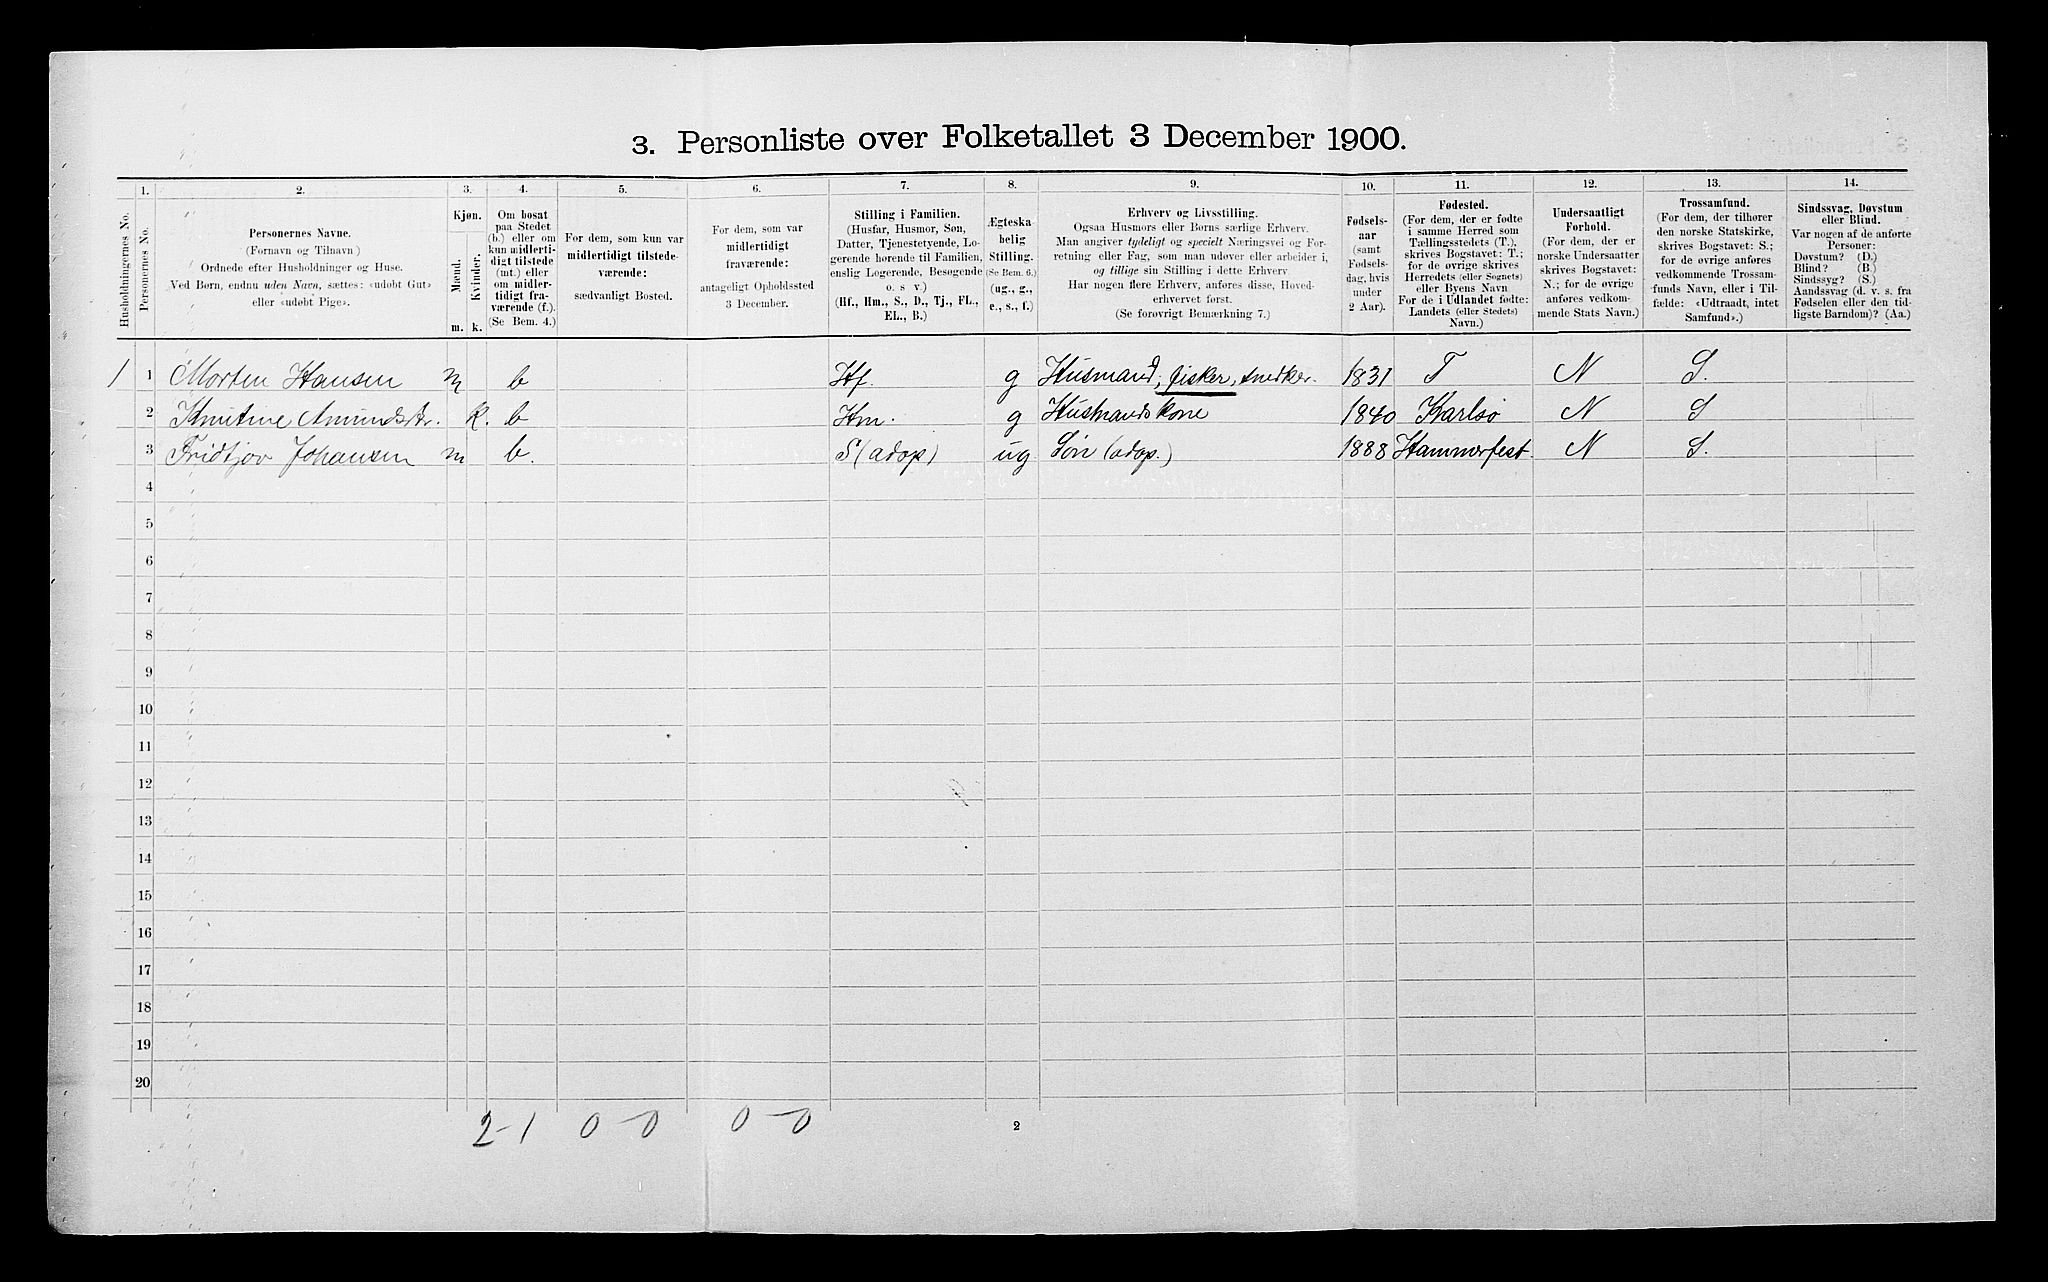 3. Personliste over Folketallet 3 December 1900.
1. 2. 3. 4. 5. 6. 7. 8. 9. 10. 11. 12. 13. 14.
Husholdningernes No.
Personernes No.
Personernes Navne.
(Fornavn og Tilnavn)
Ordnede efter Husholdninger og Huse.
Ved Børn, endnu uden Navn, sættes: «udøbt Gut»
eller «udøbt Pige».
Kjøn.
Mænd.
Kvinder.
m. k.
Om bosat
paa Stedet
(b.) eller om
kun midlerti-
digt tilstede
(mt.) eller
om midler-
tidigt fra-
værende (f.).
(Se Bem. 4.)
For dem, som kun var
midlertidigt tilstede-
værende:
sædvanligt Bosted.
For dem, som var
midlertidigt
fraværende:
antageligt Opholdssted
3 December.
Stilling i Familien.
(Husfar, Husmor, Søn,
Datter, Tjenestetyende, Lo-
gerende hørende til Familien,
enslig Logerende, Besøgende
o. s v.)
(Hf., Hm., S., D., Tj., FL.,
EL., B.)
Ægteska-
belig
Stilling.
(Se Bem. 6.)
(ug., g.,
e., s., f.)
Erhverv og Livsstilling.
Ogsaa Husmors eller Børns særlige Erhverv.
Man angiver tydeligt og specielt Næringsvei og For-
retning eller Fag, som man udøver eller arbeider i,
og tillige sin Stilling i dette Erhverv
Har nogen flere Erhverv, anføres disse, Hoved-
erhvervet først.
(Se forøvrigt Bemærkning 7.)
Fødsels-
aar
(samt
Fødsels-
dag, hvis
under
2 Aar).
Fødested.
(For dem, der er fødte
i samme Herred som
Tællingsstedets (T.),
skrives Bogstavet: T.;
for de øvrige skrives
Herredets (eller Sognets)
eller Byens Navn
For de i Udlandet fødte:
Landets (eller Stedets)
Navn.)
Undersaatligt
Forhold.
(For dem, der er
norske Undersaatter
skrives Bogstavet:
N.; for de øvrige
anføres vedkom-
mende Stats Navn.)
Trossamfund.
(For dem, der tilhører
den norske Statskirke,
skrives Bogstavet: S.;
for de øvrige anføres
vedkommende Trossam-
funds Navn, eller i Til-
fælde: «Udtraadt, intet
Samfund».)
Sindssvag, Døvstum
eller Blind.
Var nogen af de anførte
Personer:
Døvstum? (D.)
Blind? (B.)
Sindssyg? (S.)
Aandssvag (d. v. s. fra
Fødselen eller den tid-
ligste Barndom)? (Aa.)
1 1 Morten Hansen m b Hf. g Husmand, fisker, snedker. 1831 T N S.
2 Knutine Amundsdtr. K. b Hm. g Husmandskone 1840 Karlsø N S
3 Fridtjov Johansen m b. S (adop) ug Søn (adop.) 1888 Hammerfest. N S.
4
5
6
7
8
9
10
11
12
13
14
15
16
17
18
19
20
2-1 0-0 0-0 2